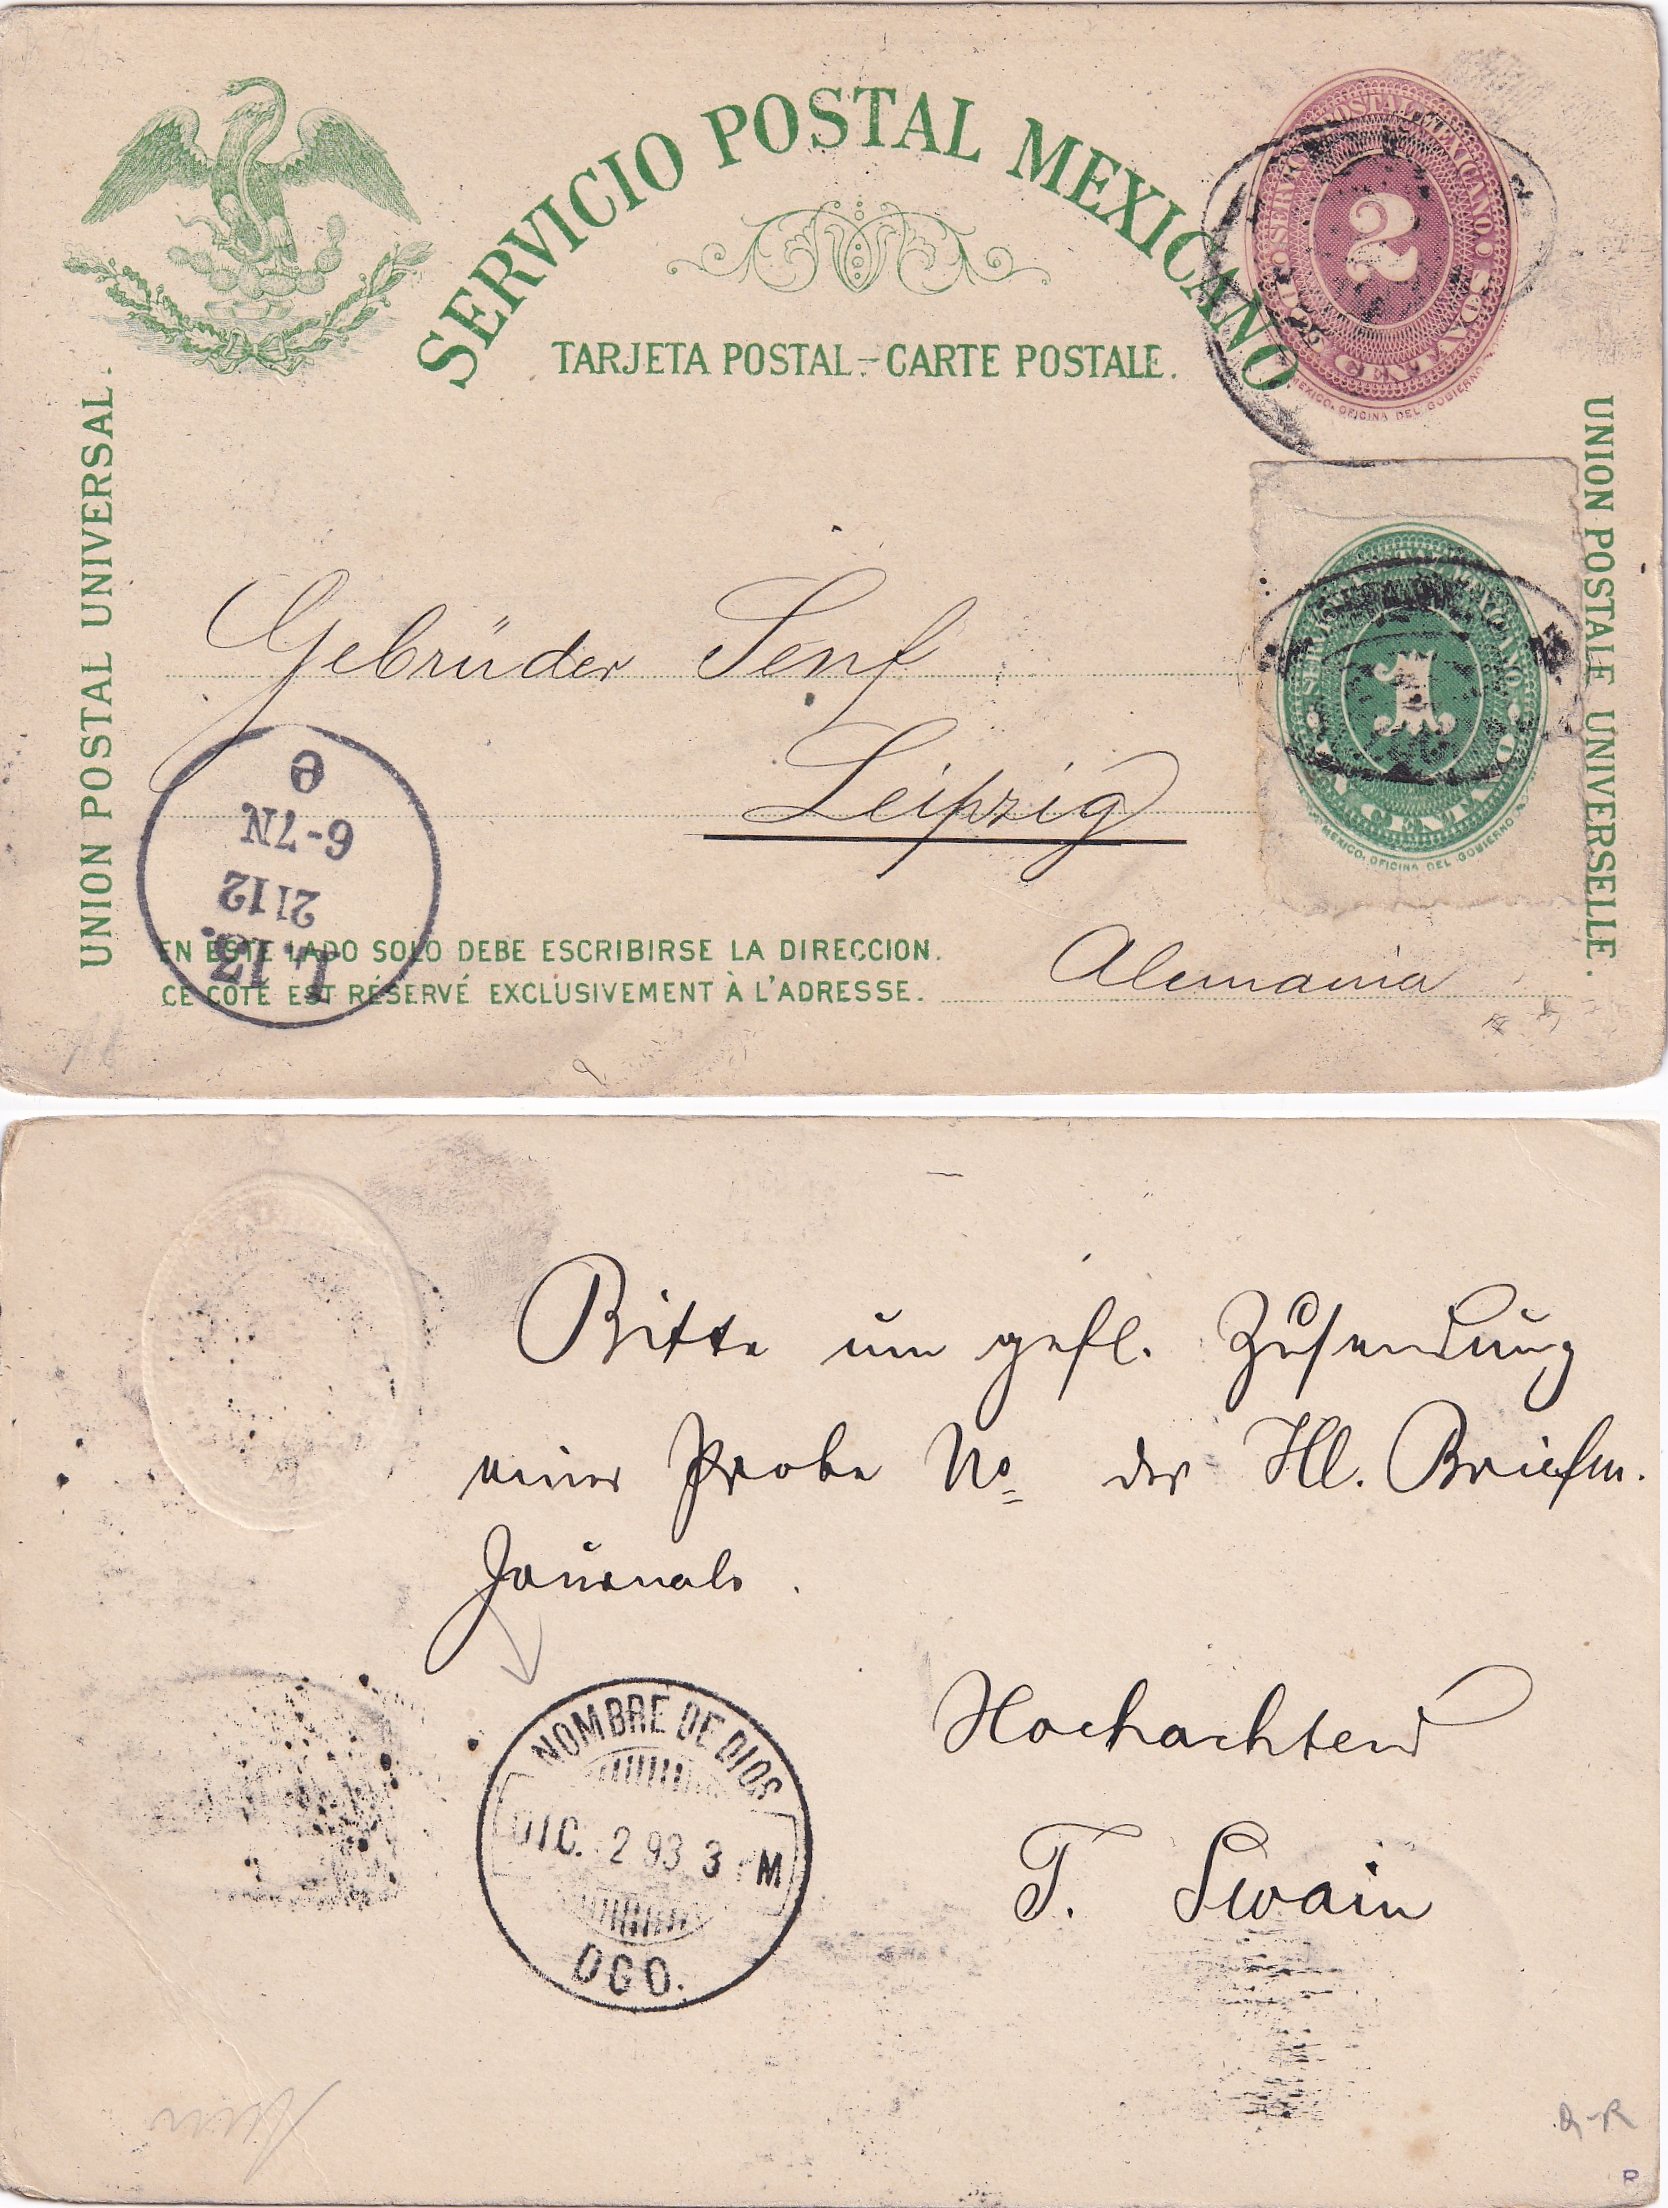 SERVICIO POSTAL MEXICANO
TARJETA POSTAL.-CARTE POSTALE.
UNION POSTAL UNIVERSAL.
UNION POSTALE UNIVERSELLE.
SERVICIO POSTAL MEXICANO
2
DOS CENTAVOS
MEXICO. OFICINA DEL GOBIERNO
SERVICIO POSTAL MEXICANO
1
UN CENTAVO
MEXICO. OFICINA DEL GOBIERNO
Gebrüder Senf
Leipzig
Alemania
L. 13.
2112
6-7N
EN ESTE LADO SOLO DEBE ESCRIBIRSE LA DIRECCION.
CE COTÉ EST RÉSERVÉ EXCLUSIVEMENT À L'ADRESSE.
Bitte um gefl. Zusendung
einer Probe No der Ill. Briefm.
Journals.
Hochachtend
T. Swain
NOMBRE DE DIOS
DIC. 2 93 3 M
DGO.
R